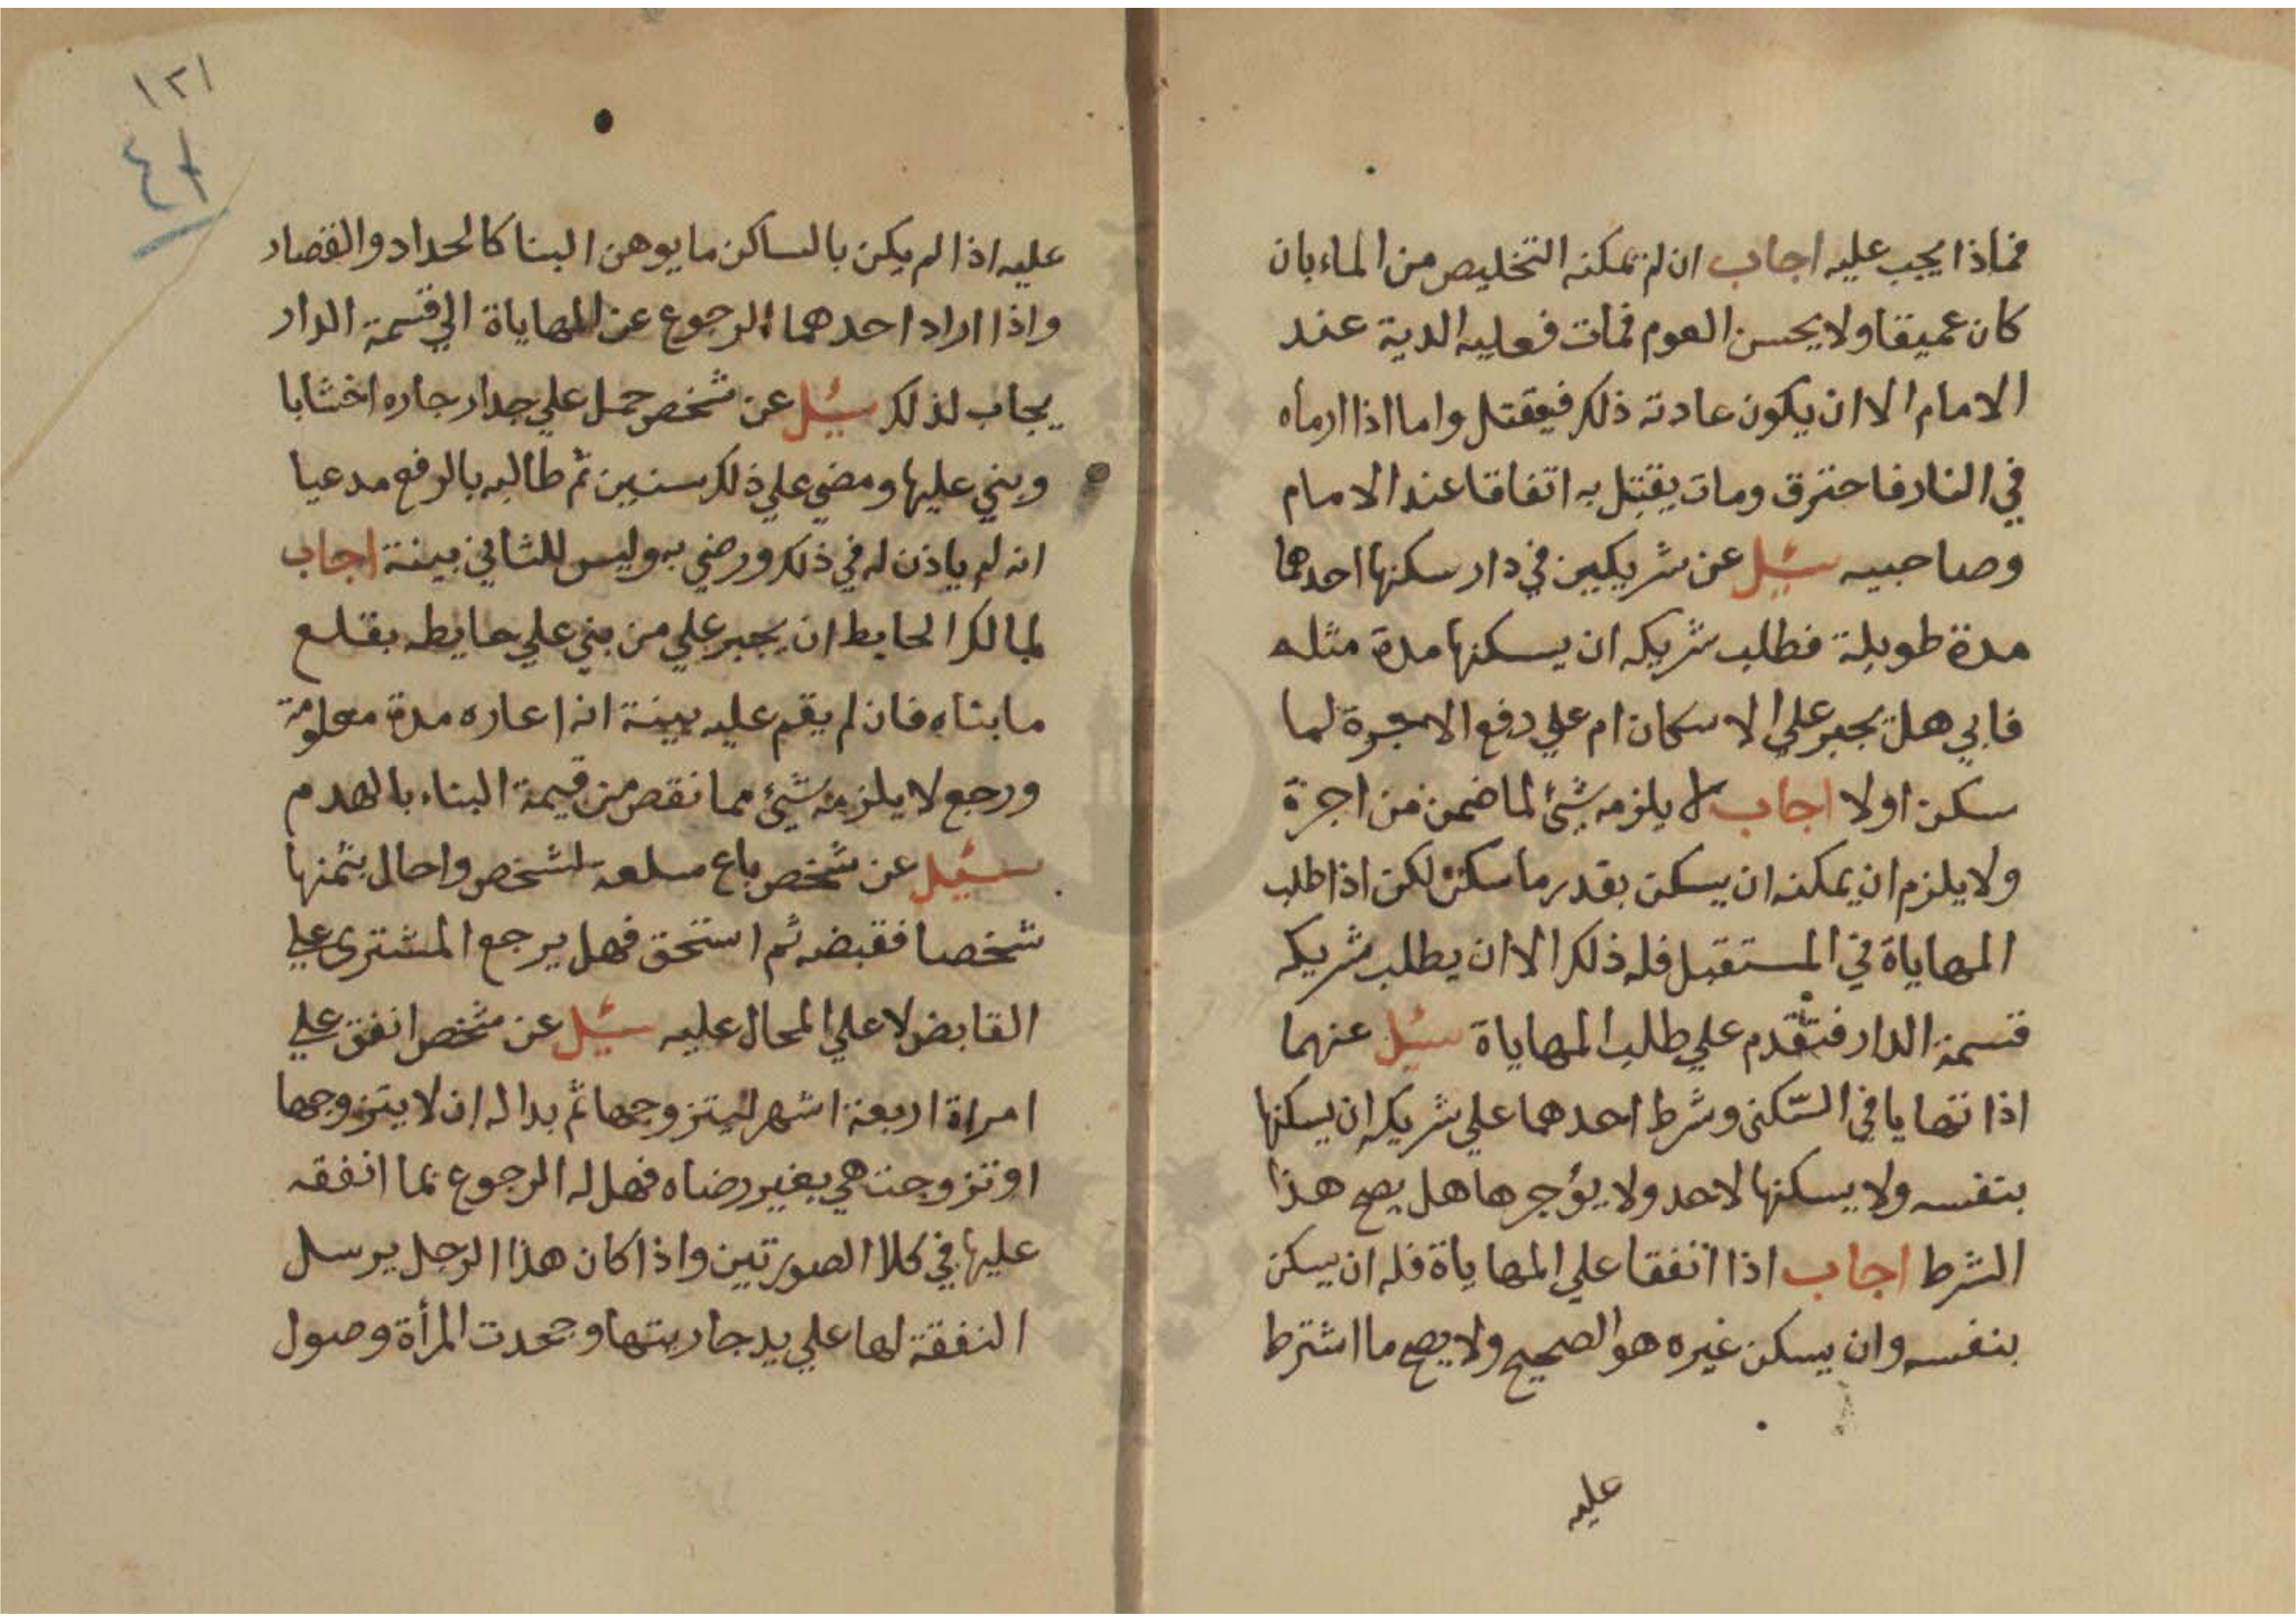 فماذا يجب عليه اجاب ان لم يمكنه التخليص من الماء بان
كان عميقا ولا يحسن العوم فمات فعليه الدية عند
الامام الا ان يكون عادته ذلك فيقتل واما اذا ارماه
في النار فاحترق ومات يقتل به اتفاقا عند الامام
وصاحبيه سئيل عن شريكين في دار سكنها احدهما
مدة طويلة فطلب شريكه ان يسكنها مدة مثله
فابي هل يجبر علي الاسكان ام علي دفع الاجرة لما
سكن اولا اجاب لا يلزمه شئ لما ضمن من اجرة
ولا يلزم ان يمكنه ان يسكن بقدر ما سكن لكن اذا طلب
المهاياة في المستقبل فله ذلك الا ان يطلب شريكه
قسمة الدار فتقدم علي طلب المهاياة سئيل عنهما
اذا تهايا في السّكنى وشرط احدهما علي شريكه ان يسكنها
بنفسه ولا يسكنها لاحد ولا يؤجرها هل يصح هذا
الشرط اجاب اذا اتفقا علي المهاياة فله ان يسكن
بنفسه وان يسكن غيره هو الصحيح ولا يصح ما اشترط
عليه
١٢١
عليه اذا لم يكن بالساكن ما يوهن البنا كالحداد والقصار
واذا اراد احدهما الرجوع عن المهاياة الي قسمة الدار
يجاب لذلك سئيل عن شخص حمل علي جدار جاره اخشابا
وبني عليها ومضي علي ذلك سنين ثم طالبه بالرفع مدعيا
انه لم ياذن له في ذلك ورضي به وليس للثاني بينة اجاب
لمالك الحايط ان يجبر علي من بني علي حايطه بقلع
ما بناه فان لم يقم عليه بينة انه اعاره مدة معلومة
ورجع لا يلزمه شئ مما نقص من قيمة البناء بالهدم
سئيل عن شخص باع سلعه لشخص واحال بثمنها
شخصا فقبضه ثم استحق فهل يرجع المشترى علي
القابض لا علي المحال عليه سئيل عن شخص انفق علي
امراة اربعة اشهر ليتزوجها ثم بدا له ان لا يتزوجها
او تزوجت هي بغير رضاه فهل له الرجوع بما انفقه
عليها في كلا الصورتين واذا كان هذا الرجل يرسل
النفقة لها علي يد جاريتها وجحدت المرأة وصول